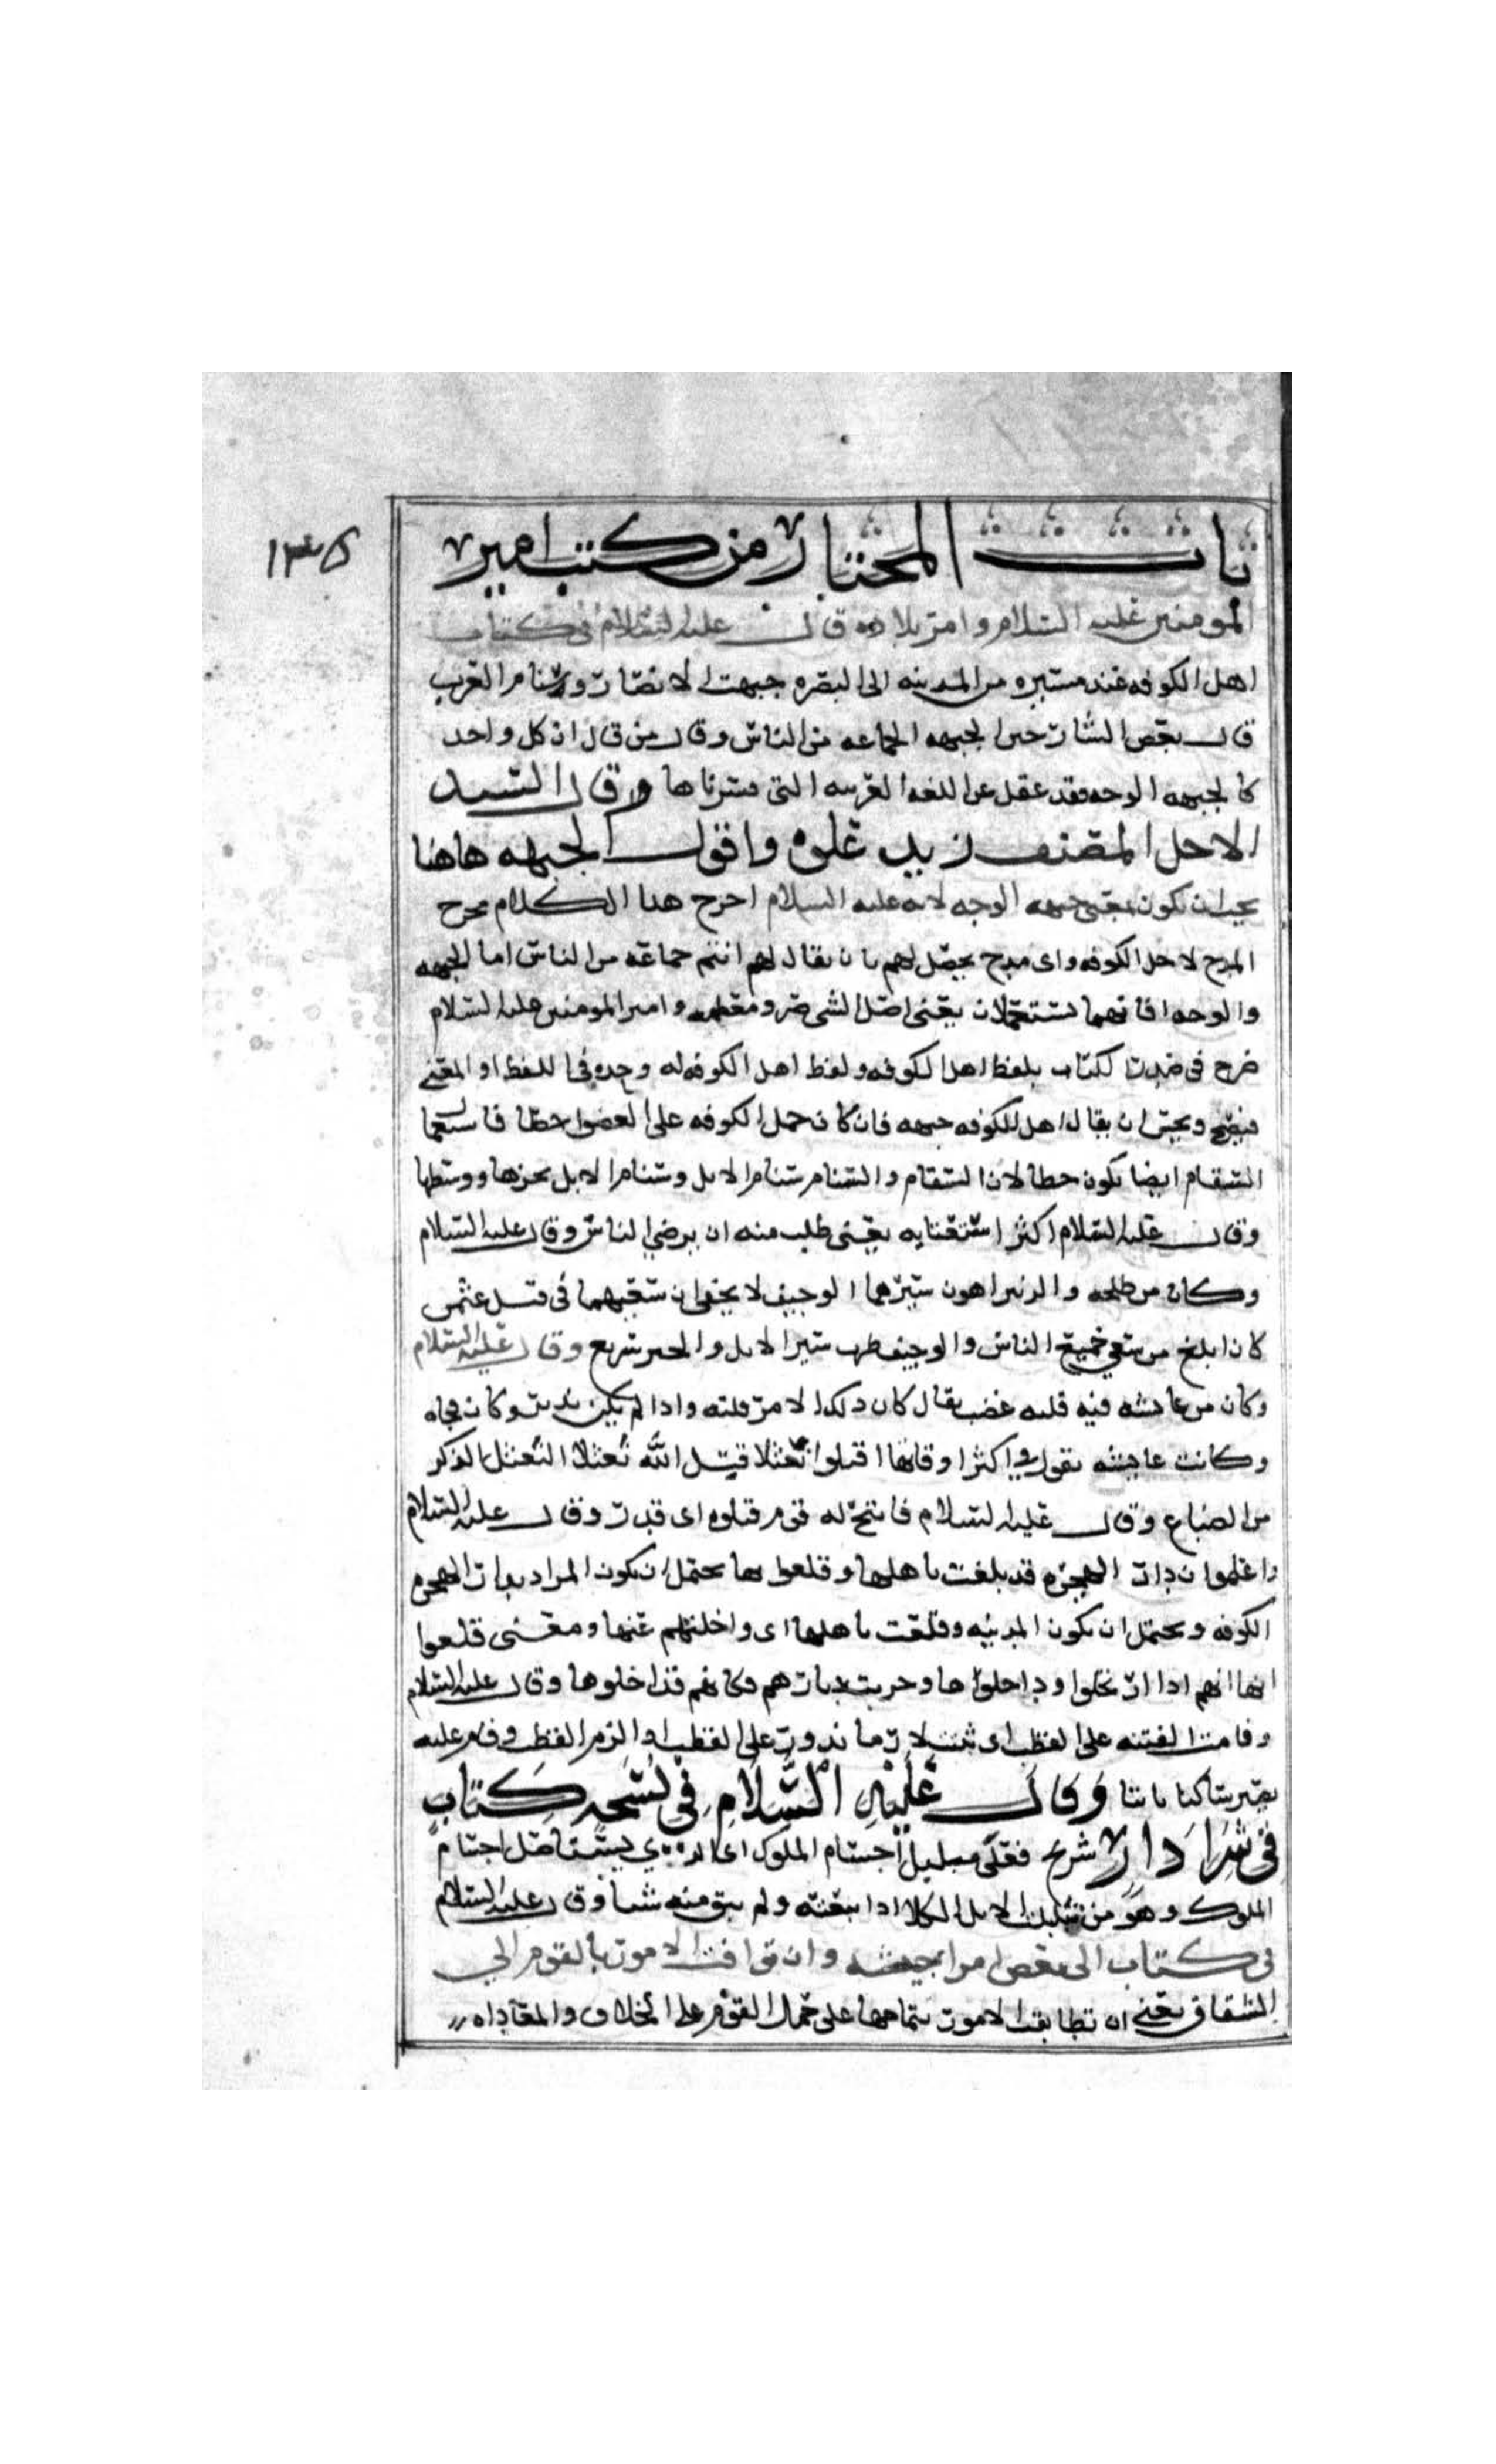 ١٣٥
باب المختار من كتب امير
المومنين عليه السلام وامر بلاده قال عليه السلام في كتاب
اهل الكوفه عند مسيره من المدينه الى البصره جبهت الانصار وسنام العرب
قال بعض الشارحين الجبهه الجماعه من الناس وقال من قال ان كل واحد
كالجبهه الوجه فقد غفل عن اللغه العربيه التي فسرناها وقال السيد
الاجل المصنف زيد علوه واقول الجبهه هاهنا
يجب ان تكون بمعنى جبهه الوجه لانه عليه السلام اخرج هدا الكلام مخرج
المدح لاهل الكوفه واى مدح يحصل لهم بان يقال لهم انتم جماعه من الناس اما الجبهه
والوجه فانهما تستعملان بمعنى اصل الشي ومعظمه وامير المومنين عليه السلام
صرح في صدر الكتاب بلفظ اهل الكوفه ولفظ اهل الكوفه له وحده في اللفظ او المعنى
فيصح ويحسن ان يقال اهل الكوفه جبهه فان كان حمل الكوفه على العضو خطا فاستعما
السقام ايضا تكون خطا لان السقام والسنام سنام الابل وسنام الابل ووسطها
وقال عليه السلام اكثر استعتابه يعني طلب منه ان يرضي الناس وقال عليه السلام
وكان من طلحه والزبير اهون سيرهما الوجيف لا يخفى ان سعيهما في قتل عثمن
كان ابلغ من سعي جميع الناس والوجيف سير الابل والخير سريع وقال عليه السلام
وكان من عايشه فيه فلته غضب يقال كان دلك الامر فلته وادا لم يكن تدبر وكان فجاه
وكانت عايشه تقول في اكثر اوقاتها اقتلوا نعثلا قتل الله نعثلا النعثل الذكر
من الضباع وقال عليه السلام فانتح له قوم قتلوه اى قدر وقال عليه السلام
واعلموا ان دار الهجره قد بلغت باهلها وقلعوا بها يحتمل ان يكون المراد بدار الهجره
الكوفه ويحتمل ان يكون المدينه وقلعت باهلها اى واخلتهم عنها ومعنى قلعوا
انها انهم ادا ارتحلوا وخربت ديارهم فكانهم قد اخلوها وقال عليه السلام
وقامت الفتنه على القطب اى ثبتت لان ما يدور على القطب ادا لزم القطب وقام عليه
يصير ساكنا ثابتا وقال عليه السلام في نسخه كتاب
في شرا دار شريح فعلى مبلبل اجسام الملوك اى الدى يستاصل اجسام
الملوك وهو من الابل الكلا ادا تبعته ولم يبق منه شيا وقال عليه السلام
في كتاب الى بعض امرا جيشه وان توافت الامور بالقوم الى
الشقاق يعني ان تطابق الامور بتمامها على حمل القوم على الخلاف والمعاداه